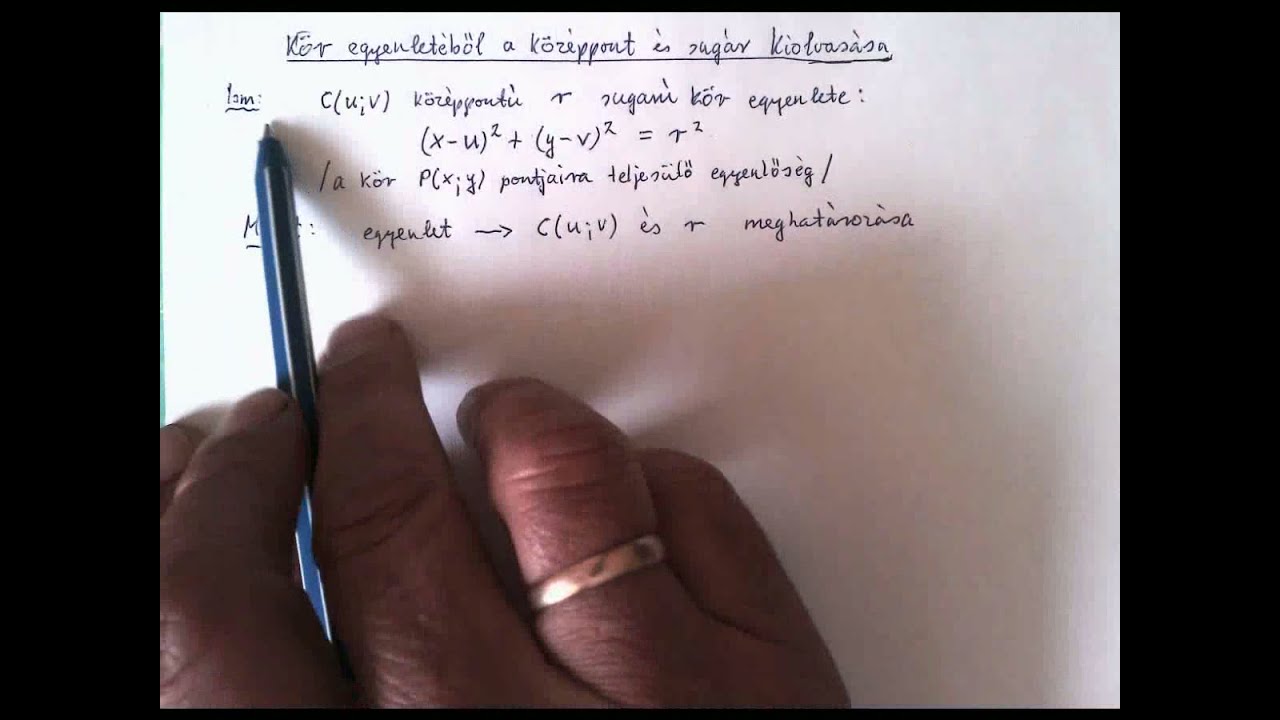 Kör egyenletéből a középpont és sugár kiolvasása
Ism: C(u;v) középpontú r sugarú kör egyenlete:
(x-u)² + (y-v)² = r²
/a kör P(x;y) pontjaira teljesülő egyenlőség/
egyenlet → C(u;v) és r meghatározása